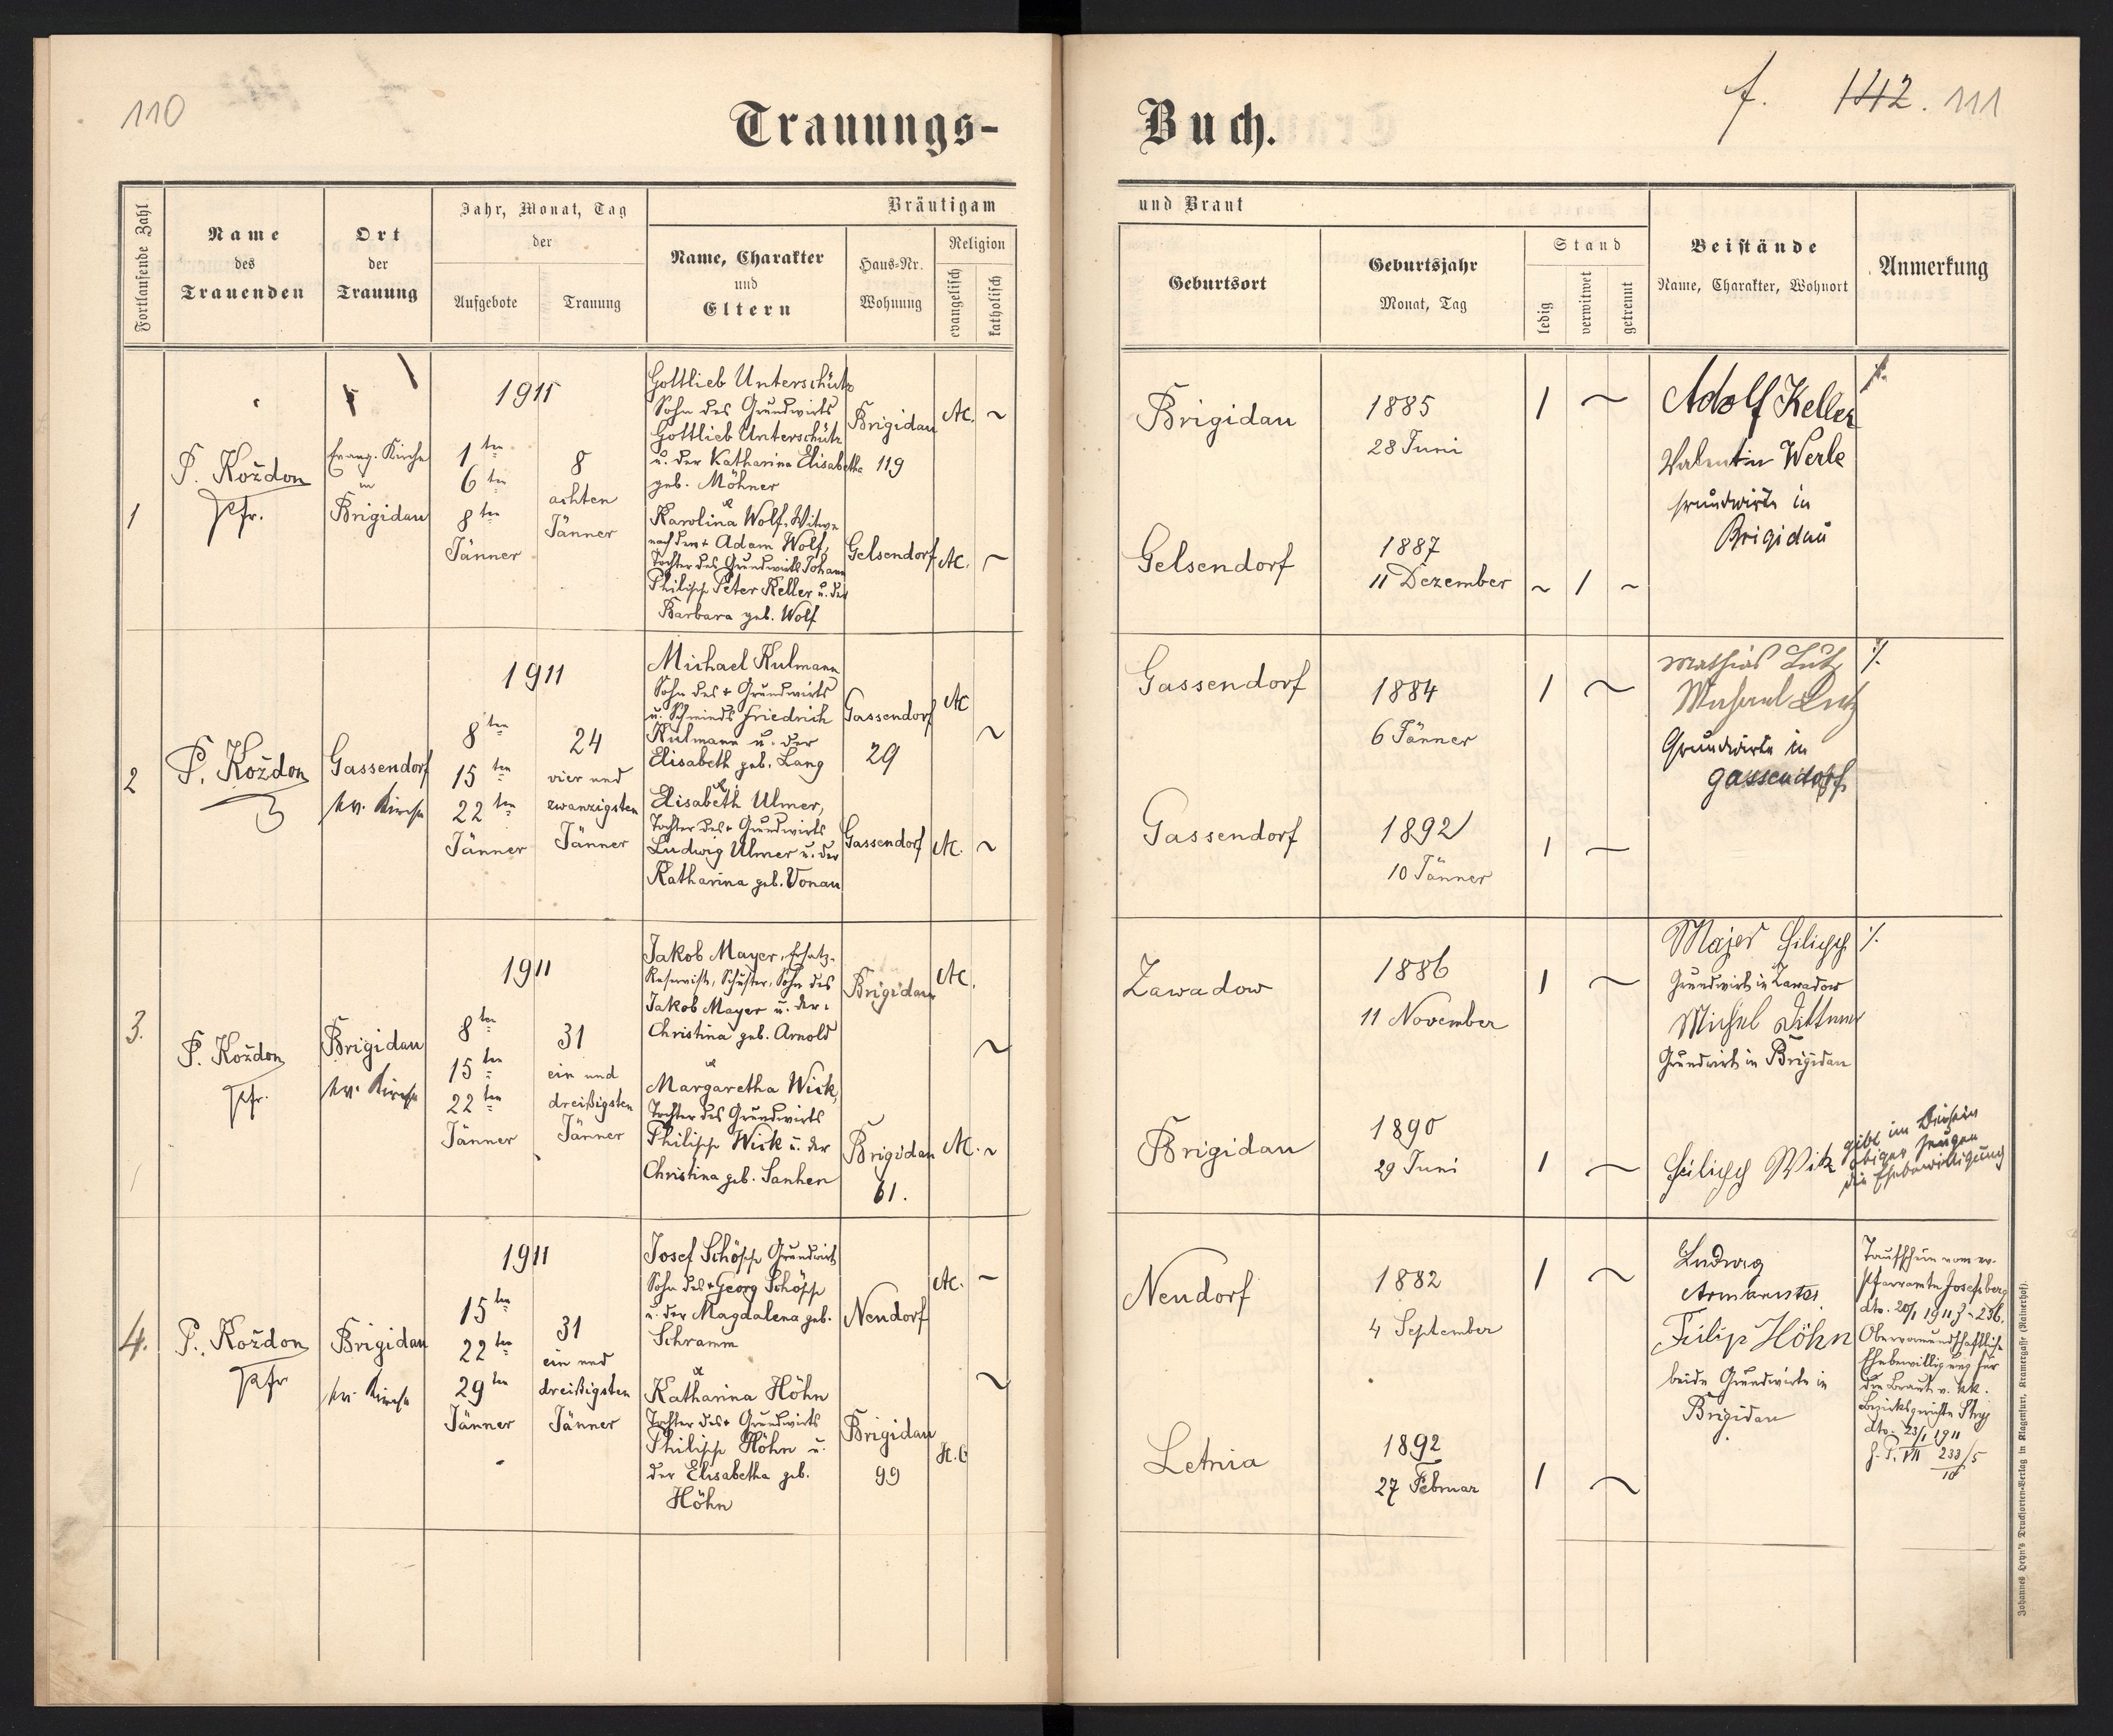 110
f. 142. 111
Trauungs-Buch.
Fortlaufende Zahl
Name
des
Trauenden
Ort
der
Trauung
Jahr, Monat, Tag
der
Aufgebote
Trauung
Bräutigam
und Braut
Name, Charakter
und
Eltern
Haus-Nr.
Wohnung
Religion
evangelisch
katholisch
Geburtsort
Geburtsjahr
Monat, Tag
Stand
ledig
verwitwet
getrennt
Beistände
Name, Charakter, Wohnort
Anmerkung
1
P. Koždon
Pfr.
Evang. Kirche
in
Brigidau
1911
1ten
6ten
8ten
Jänner
8
achten
Jänner
Gottlieb Unterschütz
Sohn des Grundwirts
Gottlieb Unterschütz
u. der Katharina Elisabetha
geb. Möhner
Brigidau
119
AC. ~
&
Karolina Wolf, Witwe
nach dem + Adam Wolf,
Tochter des Grundwirts Johann
Philipp Peter Keller u. der
Barbara geb. Wolf
Gelsendorf
AC. ~
Brigidau
1885
28 Juni
1 ~
Gelsendorf
1887
11 Dezember
~ 1 ~
Adolf Keller
Valentin Werle
Grundwirte in
Brigidau
2
P. Koždon
Gassendorf
ev. Kirche
1911
8ten
15ten
22ten
Jänner
24
vier und
zwanzigsten
Jänner
Michael Kulmann
Sohn des + Grundwirts
u. Schmieds Friedrich
Kulmann u. der
Elisabeth geb. Lang
Gassendorf
29
AC
~
&
Elisabeth Ulmer,
Tochter des + Grundwirts
Ludwig Ulmer u. der
Katharina geb. Vonau
Gassendorf
AC. ~
Gassendorf
1884
6 Jänner
1 ~
Gassendorf
1892
10 Jänner
1 ~
Mathias Lutz
Michael Lutz
Grundwirte in
Gassendorf
%
3.
P. Koždon
Pfr.
Brigidau
ev. Kirche
1911
8ten
15ten
22ten
Jänner
31
ein und
dreißigsten
Jänner
Jakob Mayer, Ersatz-
Reservist, Schuster, Sohn des
Jakob Mayer u. der
Christina geb. Arnold
Brigidau
AC.
~
&
Margaretha Wick,
Tochter des Grundwirts
Philipp Wick u. der
Christina geb. Sanhen
Brigidau
61.
AC. ~
Zawadow
1886
11 November
1 ~
Brigidau
1890
29 Juni
1 ~
Majer Filipp
Grundwirt in Zawadow
Michel Dittmer
Grundwirt in Brigidau
%
Filipp Wik gibt im Beisein
obiger Zeugen
die Ehebewilligung
4.
P. Koždon
Pfr
Brigidau
ev. Kirche
1911
15ten
22ten
29ten
Jänner
31
ein und
dreißigsten
Jänner
Josef Schöpp Grundwirt
Sohn des + Georg Schöpp
u. der Magdalena geb.
Schramm
Neudorf
AC. ~
&
Katharina Höhn
Tochter des + Grundwirts
Philipp Höhn u.
der Elisabetha geb.
Höhn
Brigidau
99
H.C
~
Neudorf
1882
4 September
1 ~
Letnia
1892
27 Februar
1 ~
Ludwig
Armbruster
Filip Höhn
beide Grundwirte in
Brigidau
Taufschein vom ev.
Pfarramte Josefsberg
dto. 20/1 1911 Z. 236.
Obervormundschaftliche
Ehebewilligung für
die Braut v. kk.
Bezirksgerichte Stryj
dto. 23/1 1911
Z. P. VII 233/10 /5
Johannes Heyn's Drucksorten-Verlag in Klagenfurt, Kramergasse (Rainerhof).